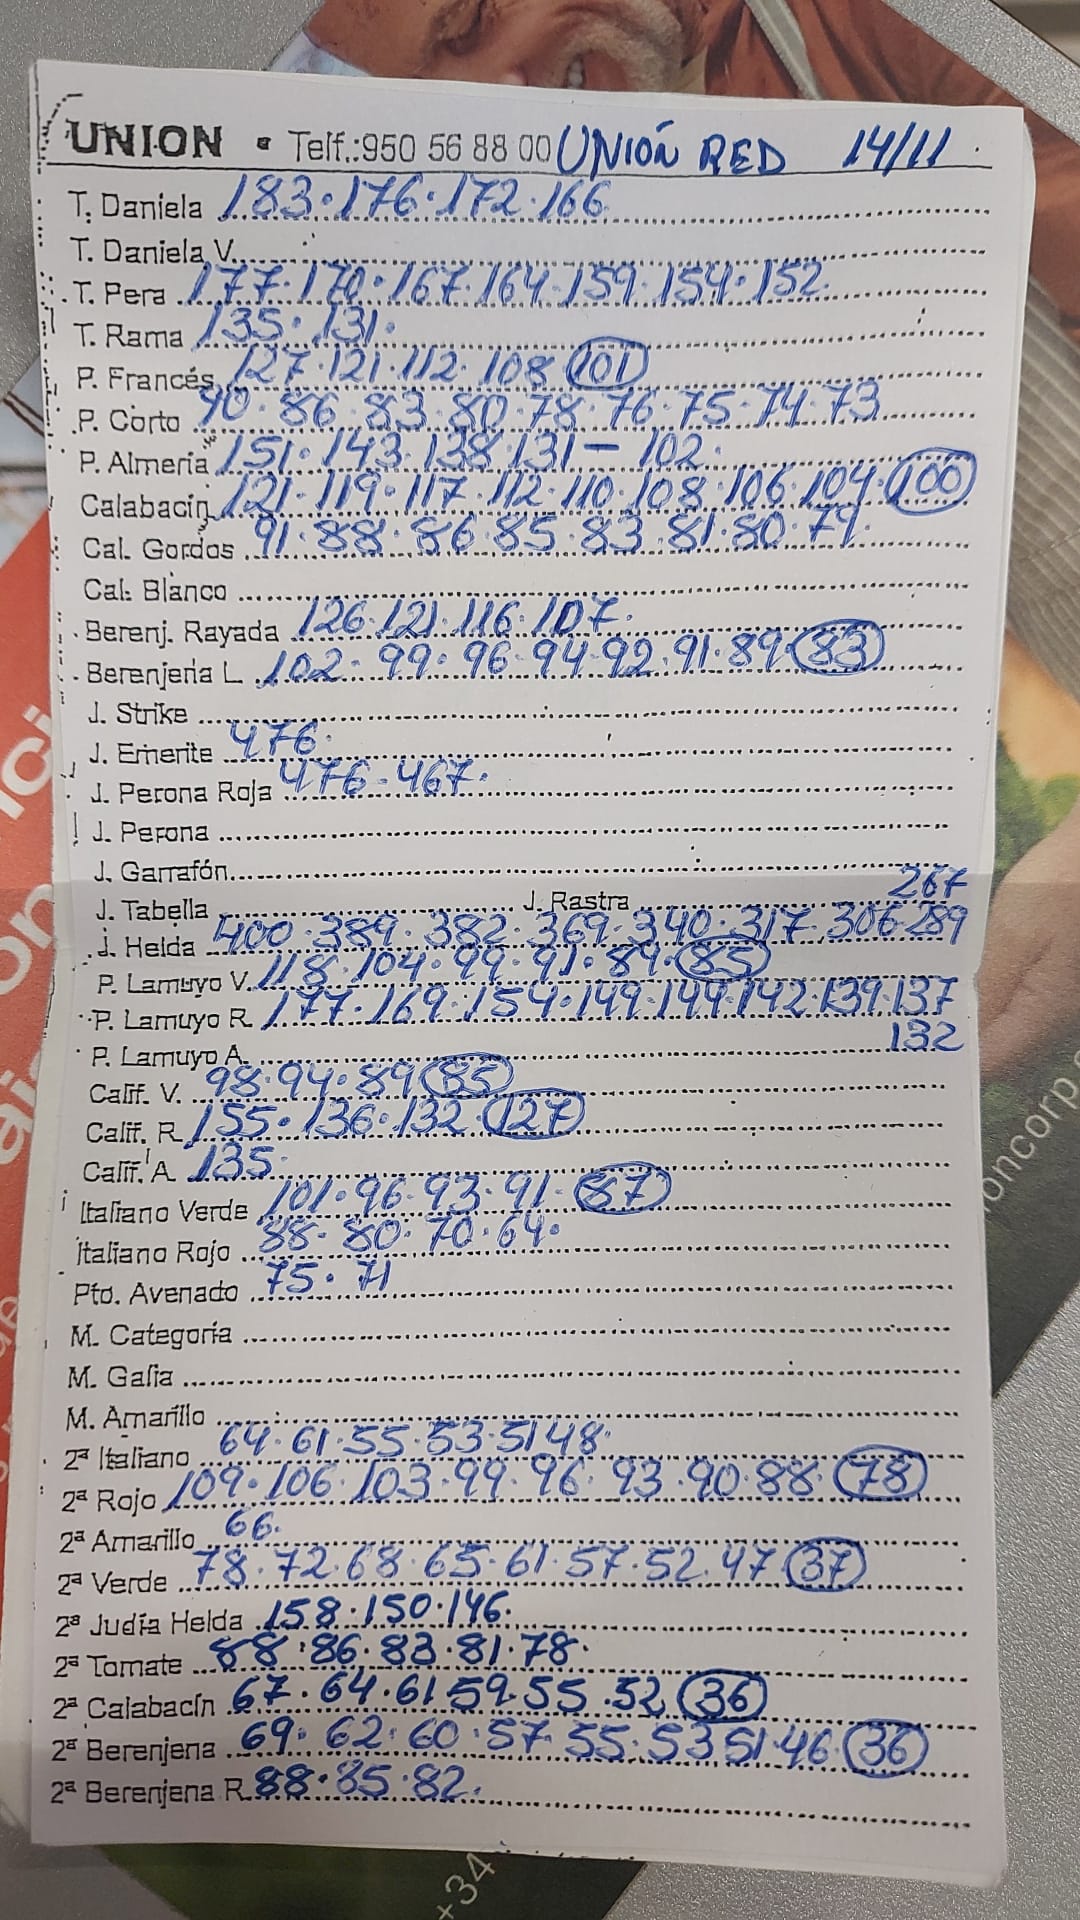 UNION • Telf.:950 56 88 00 UNIÓN RED 14/11
T. Daniela 183.176.172.166
T. Daniela V.
T. Pera 177.170.167.164.159.154.152
T. Rama 135.131.
P. Francés 127.121.112.108 101
P. Corto 90.86.83.80.78.76.75.74.73
P. Almeria 151.143.138.131-102.
Calabacín 121.119.117.112.110.108.106.104.100
Cal. Gordos 91.88.86.85.83.81.80.79.
Cal. Blanco
Berenj. Rayada 126.121.116.107.
Berenjena L. 102.99.96.94.92.91.89 83
J. Strike
J. Emerite 476.
J. Perona Roja 476-467.
J. Perona
J. Garrafón
267
J. Tabella J. Rastra
J. Helda 400.389.382.369.340.317.306.289
P. Lamuyo V. 118.104.99.91.89.85
P. Lamuyo R. 177.169.154.149.144.142.139.137
132
P. Lamuyo A.
Calif. V. 98.94.89 85
Calif. R. 155.136.132.127
Calif. A. 135.
Italiano Verde 101.96.93.91.87
Italiano Rojo 88.80.70.64.
Pto. Avenado 75.71
M. Categoría
M. Galia
M. Amarillo
2ª Italiano 64.61.55.53.51 48.
2ª Rojo 109.106.103.99.96.93.90.88.78
2ª Amarillo 66.
2ª Verde 78.72.68.65.61.57.52.47 37
2ª Judía Helda 158.150.146.
2ª Tomate 88.86.83.81.78.
2ª Calabacín 67.64.61 59.55.52 36
2ª Berenjena 69.62.60.57.55.53 51.46.36
2ª Berenjena R. 88.85.82.
oncorp
+34